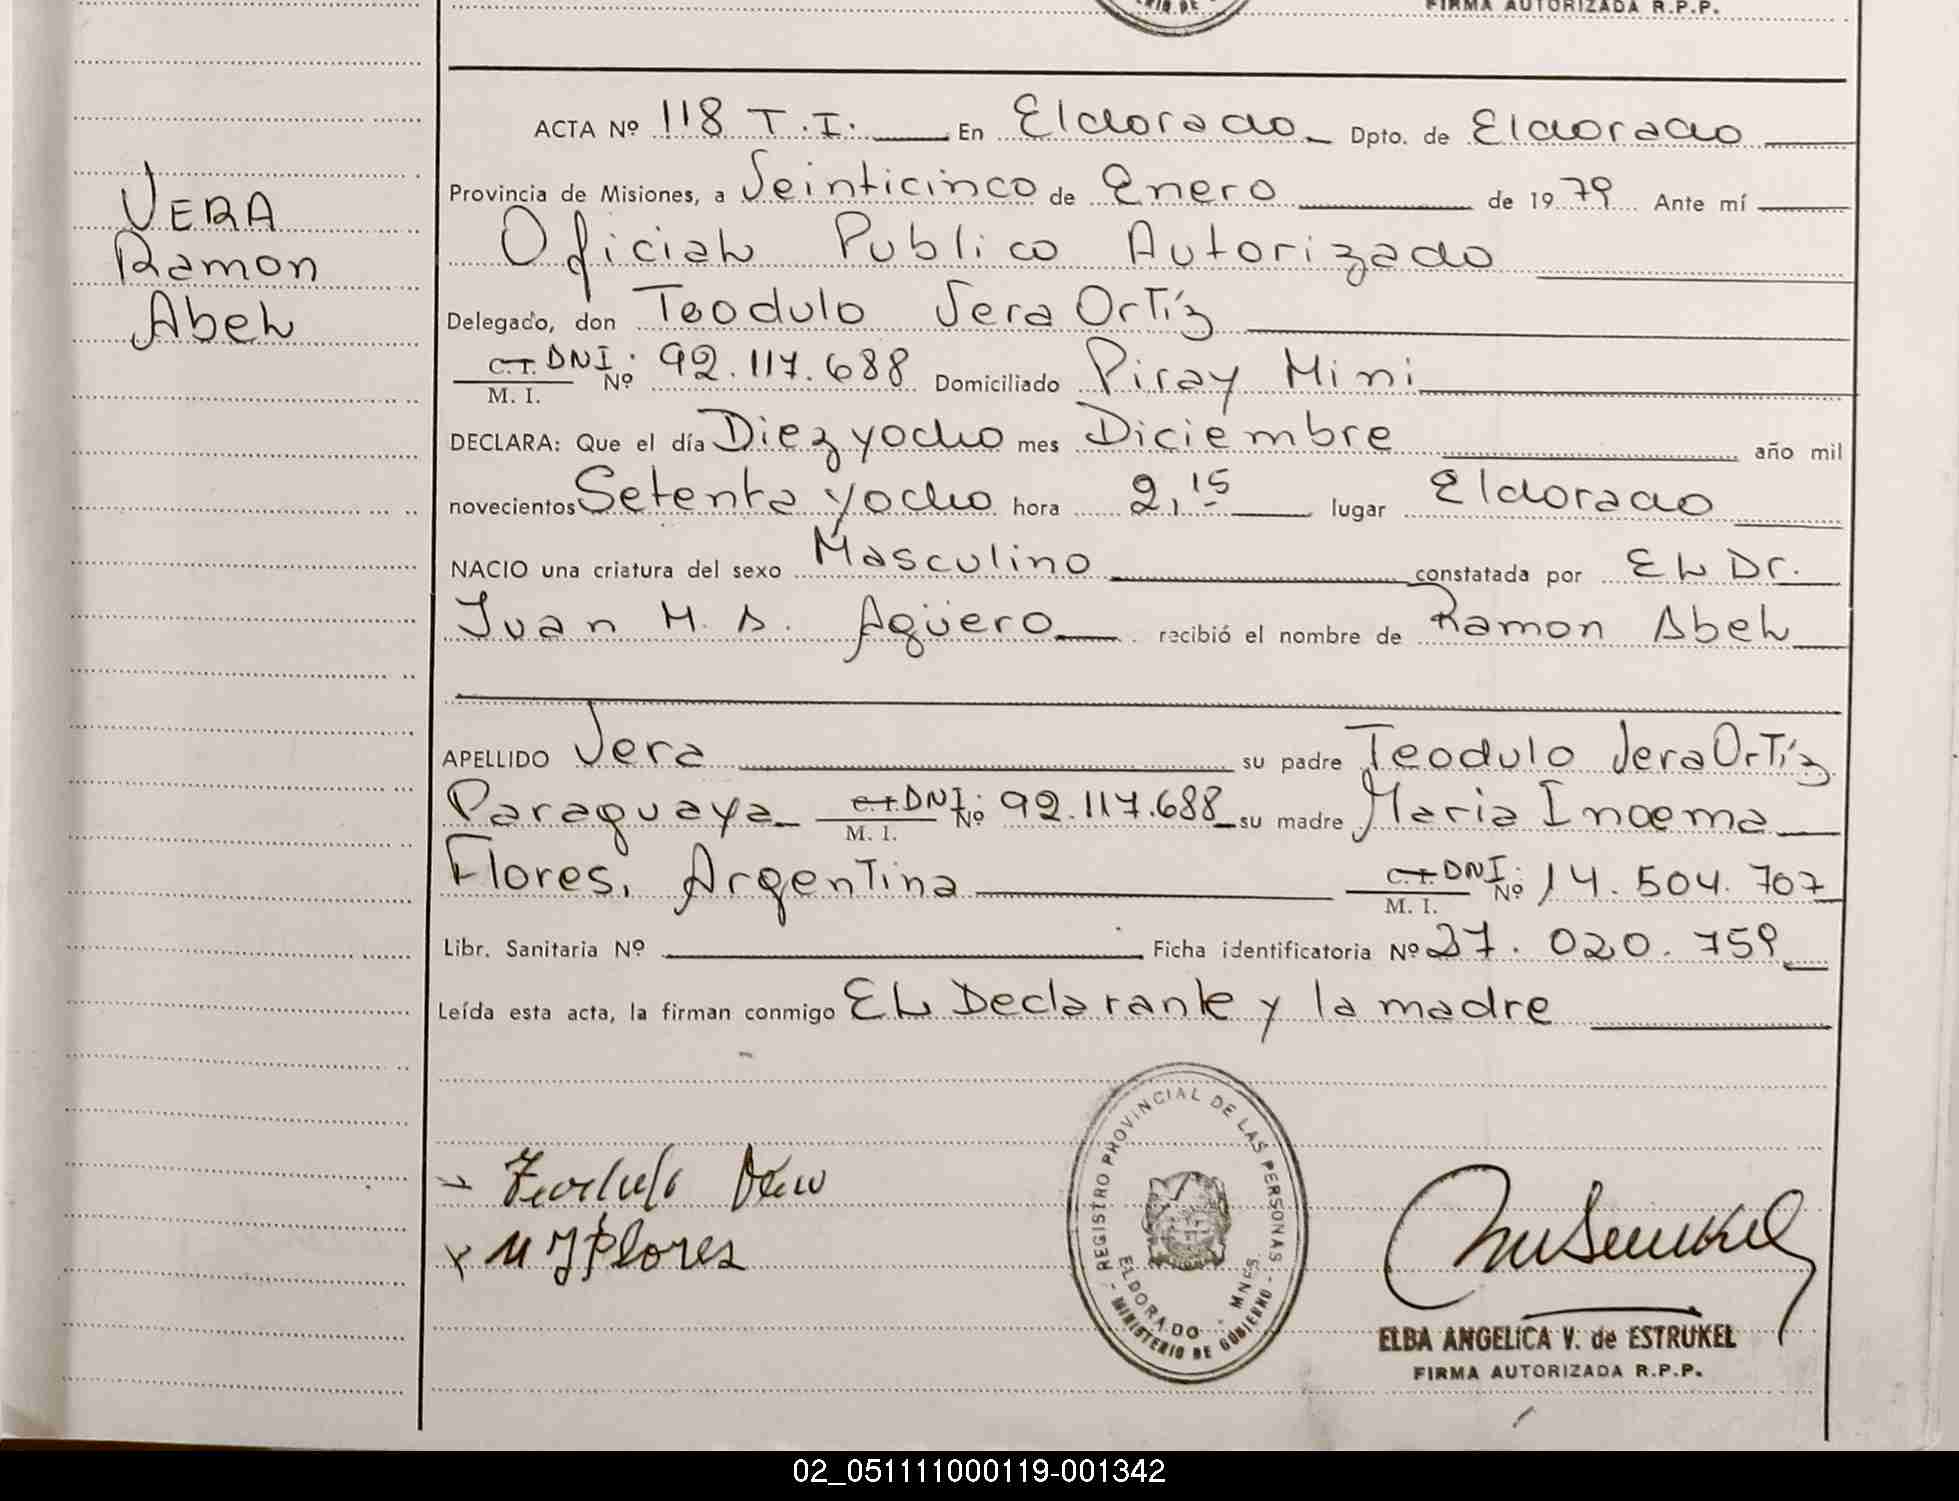 FIRMA AUTORIZADA R.P.P.
ACTA Nº 118 T.I. En Eldorado Dpto. de Eldorado
Provincia de Misiones, a Veinticinco de Enero de 1979 Ante mí
Oficial Publico Autorizado
Delegado, don Teodulo Vera Ortíz
C.I. DNI: Nº 92.117.688 Domiciliado Piray Mini
M. I.
DECLARA: Que el día Diez y ocho mes Diciembre año mil
novecientos Setenta y ocho hora 2,15 lugar Eldorado
NACIO una criatura del sexo Masculino constatada por El Dr.
Juan M. A. Agüero recibió el nombre de Ramon Abel
APELLIDO Vera su padre Teodulo Vera Ortíz
Paraguaya C.I. DNI: Nº 92.117.688 su madre Maria Inoema
M. I.
Flores, Argentina C.I. DNI: Nº 14.504.707
M. I.
Libr. Sanitaria Nº Ficha identificatoria Nº 27.020.759
Leída esta acta, la firman conmigo El Declarante y la madre
VERA
Ramon
Abel
Teodulo Vera
M I Flores
REGISTRO PROVINCIAL DE LAS PERSONAS
ELDORADO - MNES.
MINISTERIO DE GOBIERNO
ELBA ANGELICA V. de ESTRUKEL
FIRMA AUTORIZADA R.P.P.
02_051111000119-001342